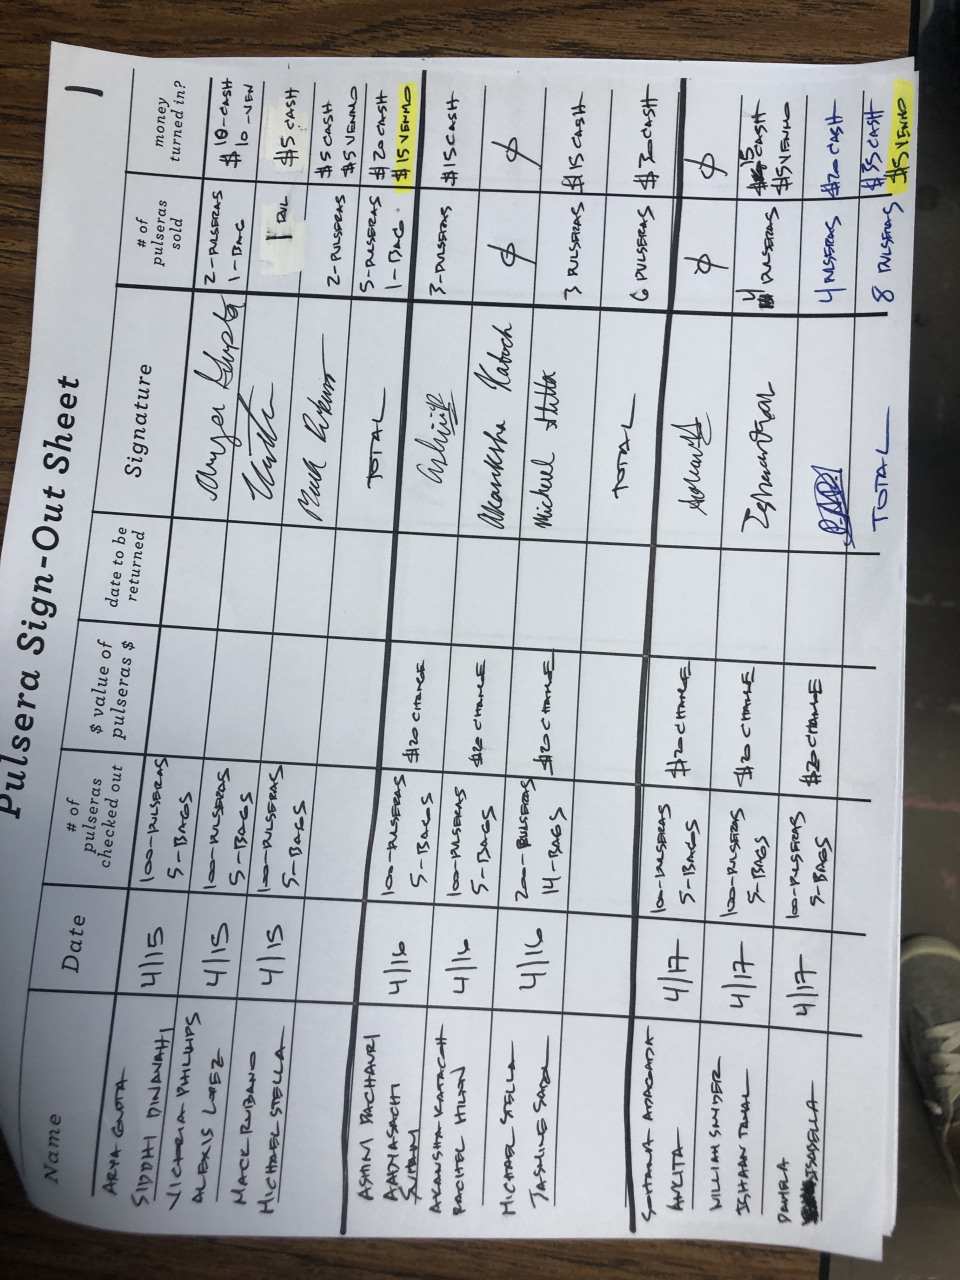 1
Pulsera Sign-Out Sheet
Name
Date
# of
pulseras
checked out
$ value of
pulseras $
date to be
returned
Signature
# of
pulseras
sold
money
turned in?
ARYA GUPTA
SIDDHI DINAVAHI
4/15
100-PULSERAS
5-BAGS
Aryer Gupta
2-PULSERAS
1-BAG
$ 10-CASH
10-VEN
VICTORIA PHILLIPS
ALEXIS LOPEZ
4/15
100-PULSERAS
5-BAGS
1 PUL
$5 CASH
MACK RUBANO
MICHAEL STELLA
4/15
100-PULSERAS
5-BAGS
2-PULSERAS
$5 CASH
$5 VENMO
TOTAL
5-PULSERAS
1-BAG
$20 CASH
$15 VENMO
ASHIM PACHAURI
AADYASACHI
4/16
100-PULSERAS
5-BAGS
$20 CHANGE
3-PULSERAS
$15 CASH
AKANSHA KATOCH
RACHEL HILTON
4/16
100-PULSERAS
5-BAGS
$20 CHANGE
Akanksha Katoch
∅
∅
MICHAEL STELLA
JASMINE
4/16
200-PULSERAS
14-BAGS
$20 CHANGE
Michael Stella
3 PULSERAS
$15 CASH
TOTAL
6 PULSERAS
$30 CASH
ANKITA
4/17
100-PULSERAS
5-BAGS
$20 CHANGE
∅
∅
WILLIAM SNYDER
ISHAAN
4/17
100-PULSERAS
5-BAGS
$20 CHANGE
4 PULSERAS
$15 CASH
$5 VENMO
ISABELLA
4/17
100-PULSERAS
5-BAGS
$20 CHANGE
4 PULSERAS
$20 CASH
TOTAL
8 PULSERAS
$35 CASH
$5 VENMO